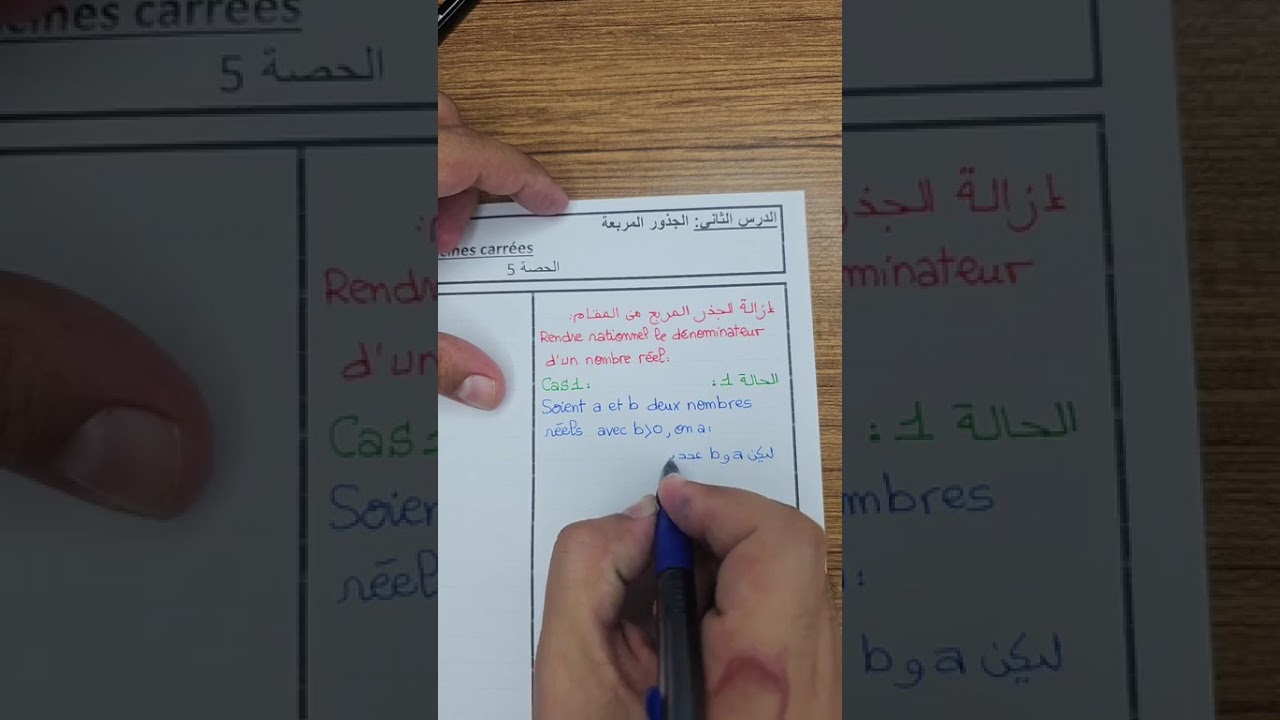 الدرس الثاني: الجذور المربعة
cines carrées
الحصة 5
إزالة الجذر المربع من المقام:
Rendre rationnel le dénominateur
d'un nombre réel:
Cas 1: الحالة 1:
Soient a et b deux nombres
réels avec b>0, on a:
ليكن a و b عدد